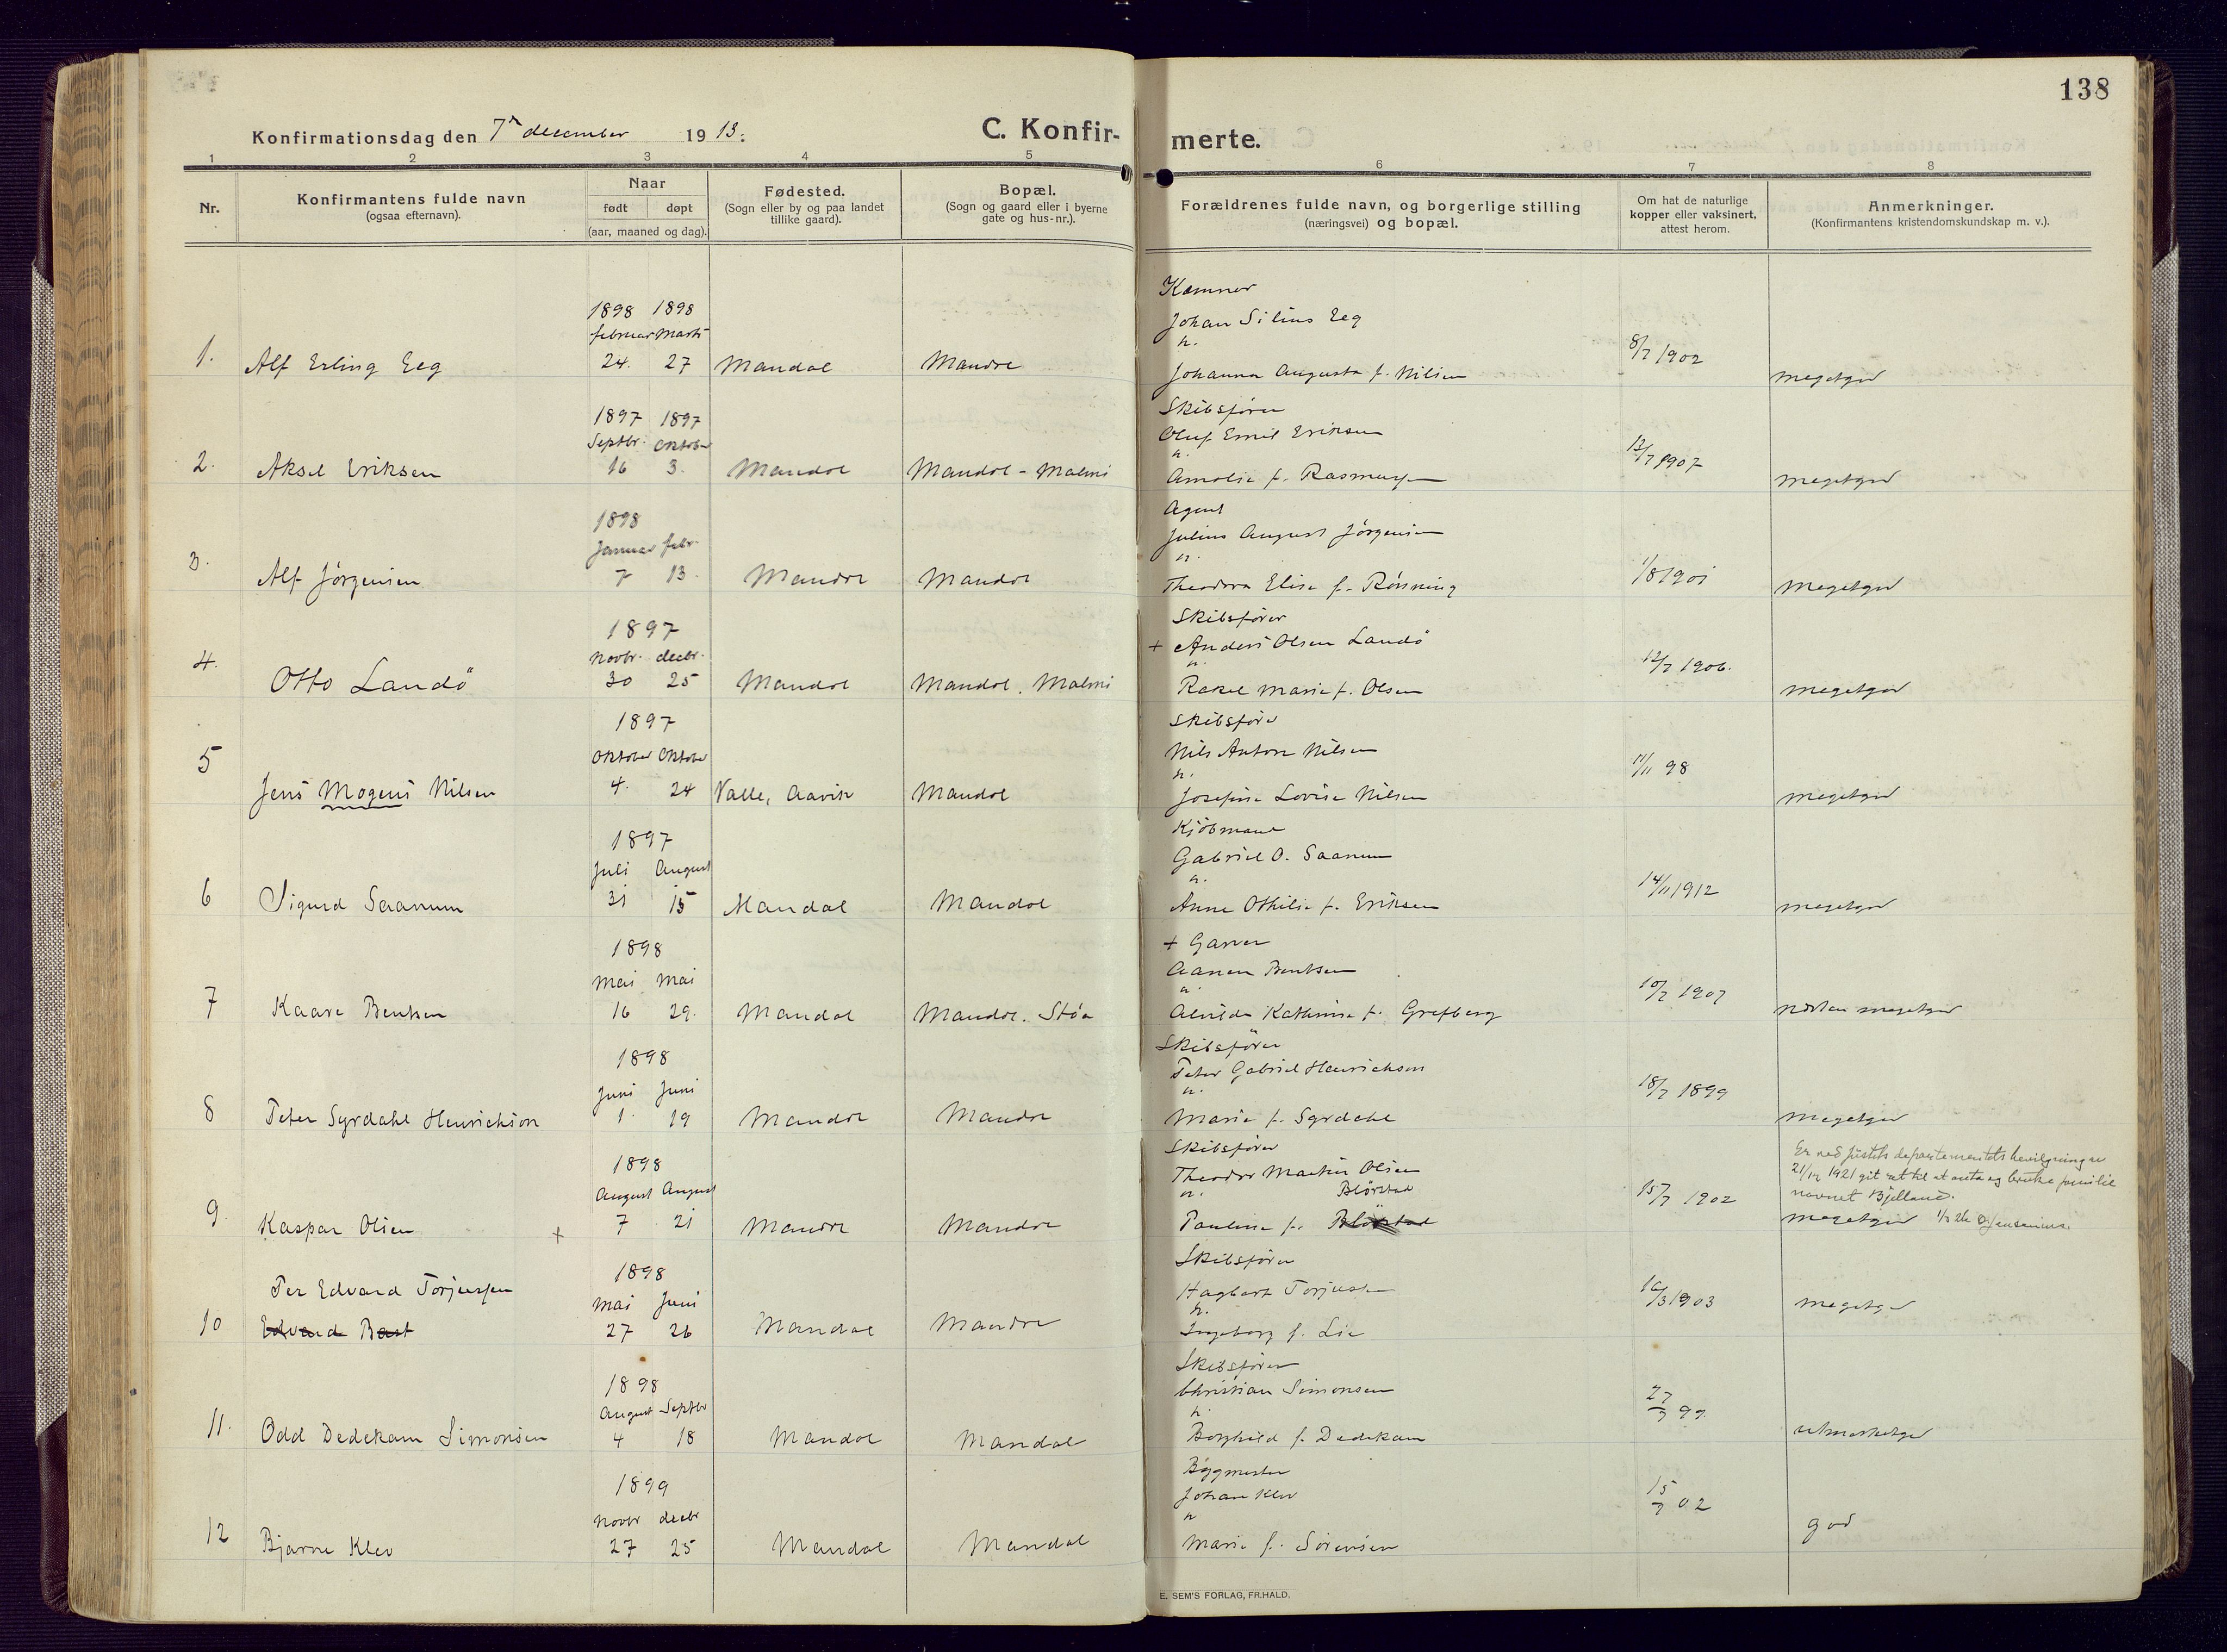 138
Konfirmationsdag den 7de december 1913.
C. Konfir-
merte.
1 2 3 4 5 6 7 8
Nr.
Konfirmantens fulde navn
(ogsaa efternavn).
Naar
født døpt
(aar, maaned og dag).
Fødested.
(Sogn eller by og paa landet
tillike gaard).
Bopæl.
(Sogn og gaard eller i byerne
gate og hus-nr.).
Forældrenes fulde navn, og borgerlige stilling
(næringsvei) og bopæl.
Om hat de naturlige
kopper eller vaksinert,
attest herom.
Anmerkninger.
(Konfirmantens kristendomskundskap m. v.).
Kæmner
1898 1898
Johan Silius Eeg
februar Marts
n.
8/7 1902
1. Alf Erling Eeg 24. 27 Mandal Mandal Johanna Augusta f. Nilsen megetgod
Skibsfører
1897 1897
Oluf Emil Eriksen
Septbr. Oktober
n.
12/7 1907
2. Aksel Eriksen 16 3. Mandal Mandal - Malmø Amalie f. Rasmussen megetgod
Agent
1898
Julius August Jörgensen
Januar febr.
n.
1/8 1901
3. Alf Jörgensen 7 13. Mandal Mandal Theodora Elise f. Rönning megetgod
Skibsfører
1897
+ Anders Olsen Landö
novbr. decbr.
n.
12/7 1906.
4. Otto Landö 30 25 Mandal Mandal. Malmø Rakel Marie f. Olsen megetgod
Skibsfører
1897
Nils Anton Nilsen
Oktober Oktober
n.
11/11 98
5 Jens Mogens Nilsen 4. 24 Valle, Aavik Mandal Josefine Lovise Nilsen megetgod
Kjöbmand
1897
Gabriel O. Saanum
Juli August
n.
14/11 1912
6 Sigurd Saanum 31 15 Mandal Mandal Anne Othilie f. Eriksen megetgod
+ Garver
1898
Aanen Bentsen
Mai Mai
n.
10/7 1907
7 Kaare Bentsen 16 29. Mandal Mandal. Støa Alvilde Kathrine f. Grefberg næsten megetgod
Skibsfører
1898
Peter Gabriel Henrichsen
Juni Juni
n.
18/7 1899
8 Peter Syrdahl Henrichsen 1. 19 Mandal Mandal Marie f. Syrdahl megetgod
Skibsfører
Er ved Justitsdepartementets bevilgning av
1898
Theodor Martin Olsen
21/12 1921 git ret til at anta og bruke familie
August August
n. Blörstad
15/7 1902
navnet Bjelland.
9. Kaspar Olsen + 7 21 Mandal Mandal Pauline f. Blörstad megetgod
Skibsfører
Per Edvard Torjussen
1898
Hagbart Torjussen
16/3 1903
Mai Juni
n.
megetgod
10 Edvard Bast 27 26 Mandal Mandal Ingeborg f. Lie
Skibsfører
1898
Christian Simonsen
August Septbr
n.
27/7 99.
11. Odd Dedekam Simonsen 4 18 Mandal Mandal Borghild f. Dedekam utmerketgod
Byggmester
1899
Johan Klev
novbr decbr
n
15/7 02
12 Bjarne Klev 27 25 Mandal Mandal Marie f. Sörensen god
E. SEM'S FORLAG, FR.HALD.